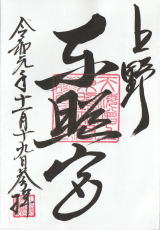 上野
東照宮
令和元年十一月十九日参拝